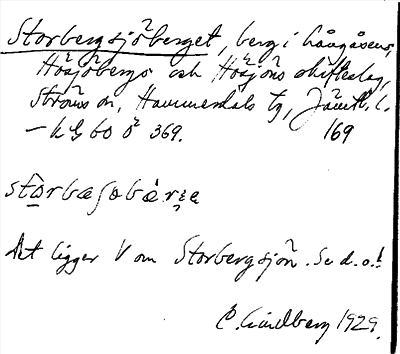 Storbergsjöberget, berg i Långåsens,
Hösjöbergs och Hösjöns skifteslag,
Ströms sn, Hammerdals tg, Jämtl. l.
– k bl 60 ö 369. 169
stɷrbæʃobæ̀rɛa
Det ligger V om Storbergsjön. Se d. o.!
C. Lindberg 1929.